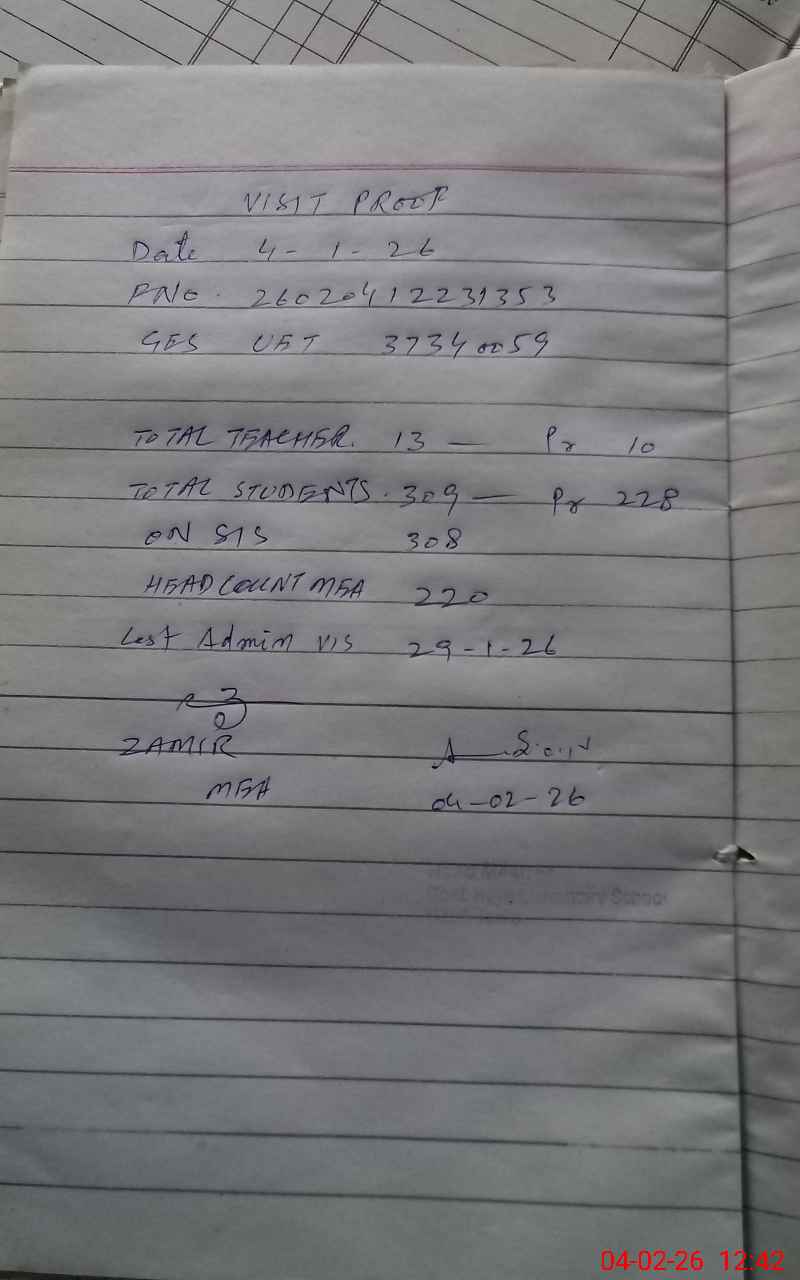 VISIT PROOF
Date 4-1-26
PNo. 26020412231353
GES 37340059
TOTAL TEACHER. 13 — Pr 10
TOTAL STUDENTS. 309 — Pr 228
ON SIS 308
HEAD COUNT MEA 220
Last Admin VIS 29-1-26
ZAMIR
MEA
04-02-26
04-02-26 12:42